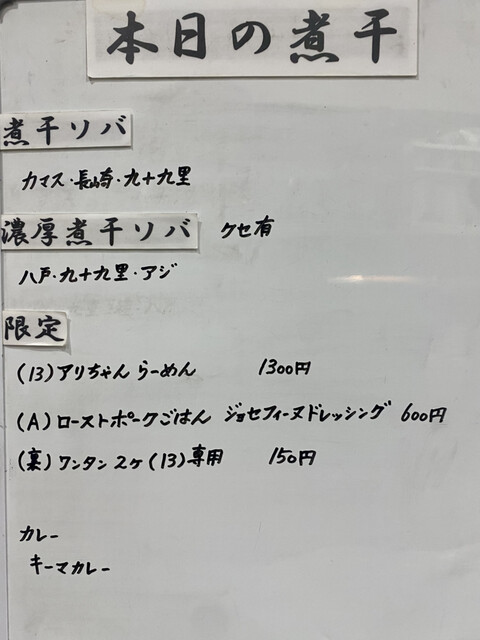 本日の煮干
煮干ソバ
カマス・長崎・九十九里
濃厚煮干ソバ クセ有
八戸・九十九里・アジ
限定
(13)アリちゃんらーめん 1300円
(A)ローストポークごはん ジョセフィーヌドレッシング 600円
(裏)ワンタン2ヶ(13)専用 150円
カレー
キーマカレー